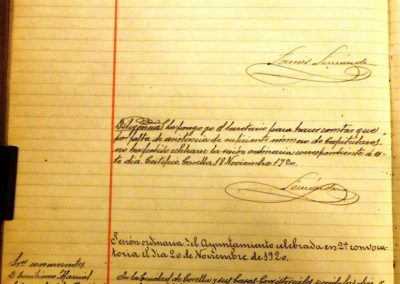 Diligencia: la pongo yo el Secretario para hacer constar que
por falta de asistencia de suficiente número de Capitulares,
no ha podido celebrarse la sesión ordinaria correspondiente á es-
te día. Certifico. Corella, 18 Noviembre 1920.
Sesión ordinaria del Ayuntamiento celebrada en 2ª convoca-
toria el día 20 de Noviembre de 1920.
Sres concurrentes
En la Ciudad de Corella y sus Casas Consistoriales